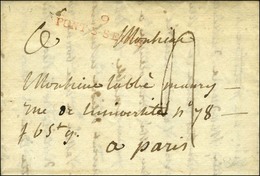 9
PONT-S-
A Monsieur
Monsieur l'abbé maury
rue de l'université n° 78
f bg St g.
a paris